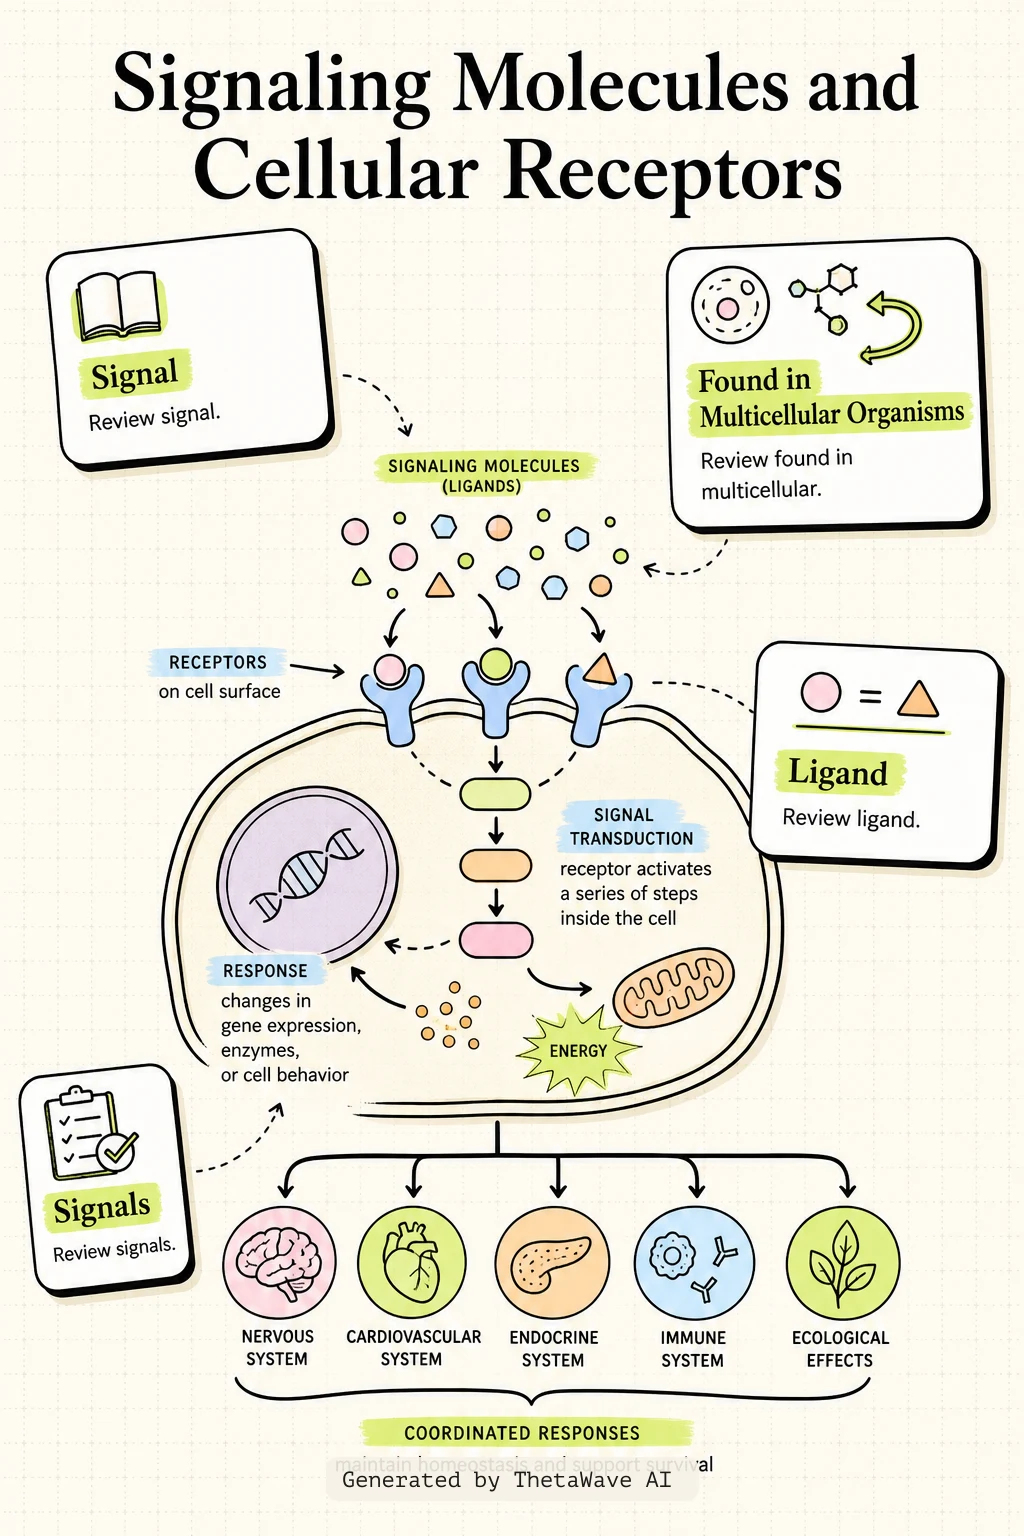 Signaling Molecules and
Cellular Receptors
Signal
Review signal.
Found in
Multicellular Organisms
Review found in
multicellular.
SIGNALING MOLECULES
(LIGANDS)
RECEPTORS
on cell surface
Ligand
Review ligand.
SIGNAL
TRANSDUCTION
receptor activates
a series of steps
inside the cell
RESPONSE
changes in
gene expression,
enzymes,
or cell behavior
ENERGY
Signals
Review signals.
NERVOUS
SYSTEM
CARDIOVASCULAR
SYSTEM
ENDOCRINE
SYSTEM
IMMUNE
SYSTEM
ECOLOGICAL
EFFECTS
COORDINATED RESPONSES
maintain homeostasis and support survival
Generated by ThetaWave AI